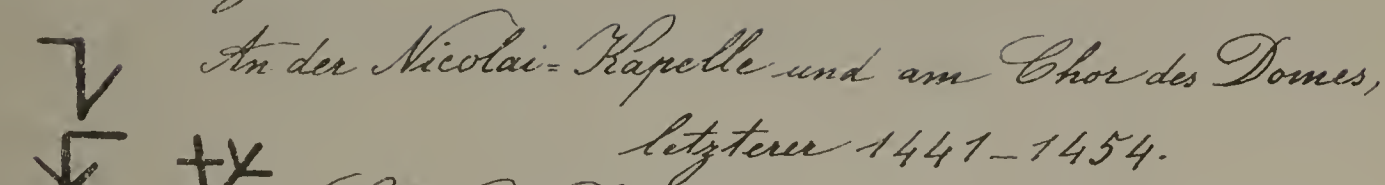 An der Nicolai=Kapelle und am Chor des Domes,
letzterer 1441–1454.